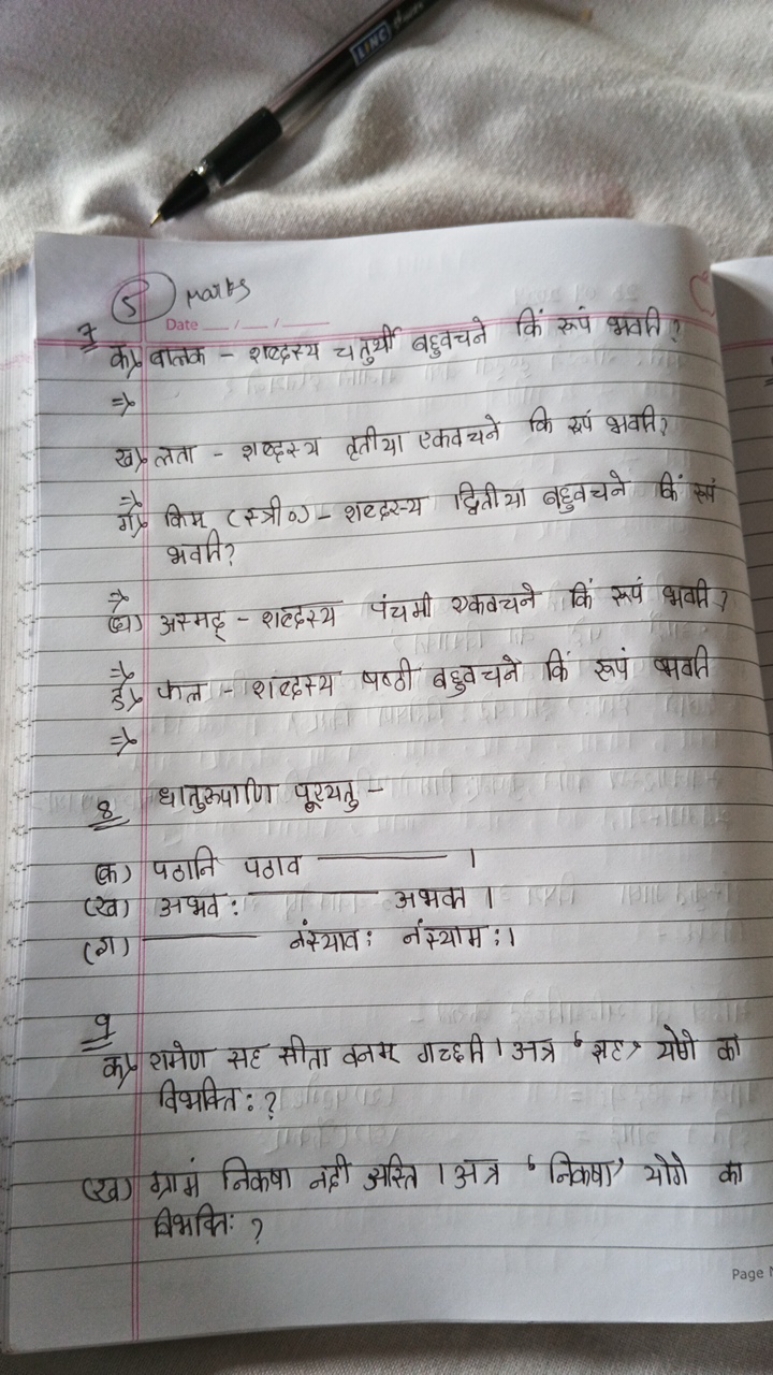 LINC
5 Marks
Date __/__/____
7 क) बालक - शब्दस्य चतुर्थी बहुवचने किं रूपं भवति?
⇒
ख) लता - शब्दस्य तृतीया एकवचने कि रूपं भवति?
⇒
ग) किम् (स्त्री०) - शब्दस्य द्वितीया बहुवचने किं रूपं
भवति?
⇒
(घ) अस्मद् - शब्दस्य पंचमी एकवचने किं रूपं भवति?
⇒
ङ) फल - शब्दस्य षष्ठी बहुवचने किं रूपं भवति
⇒
8 धातुरूपाणि पूरयतु -
(क) पठानि पठाव ______ ।
(ख) अभवः ______ अभवत ।
(ग) ______ नंस्यावः नंस्यामः।
9
क) रामेण सह सीता वनम् गच्छति । अत्र 'सह' योगे का
विभक्तिः?
(ख) ग्रामं निकषा नदी अस्ति । अत्र 'निकषा' योगे का
विभक्तिः ?
Page N